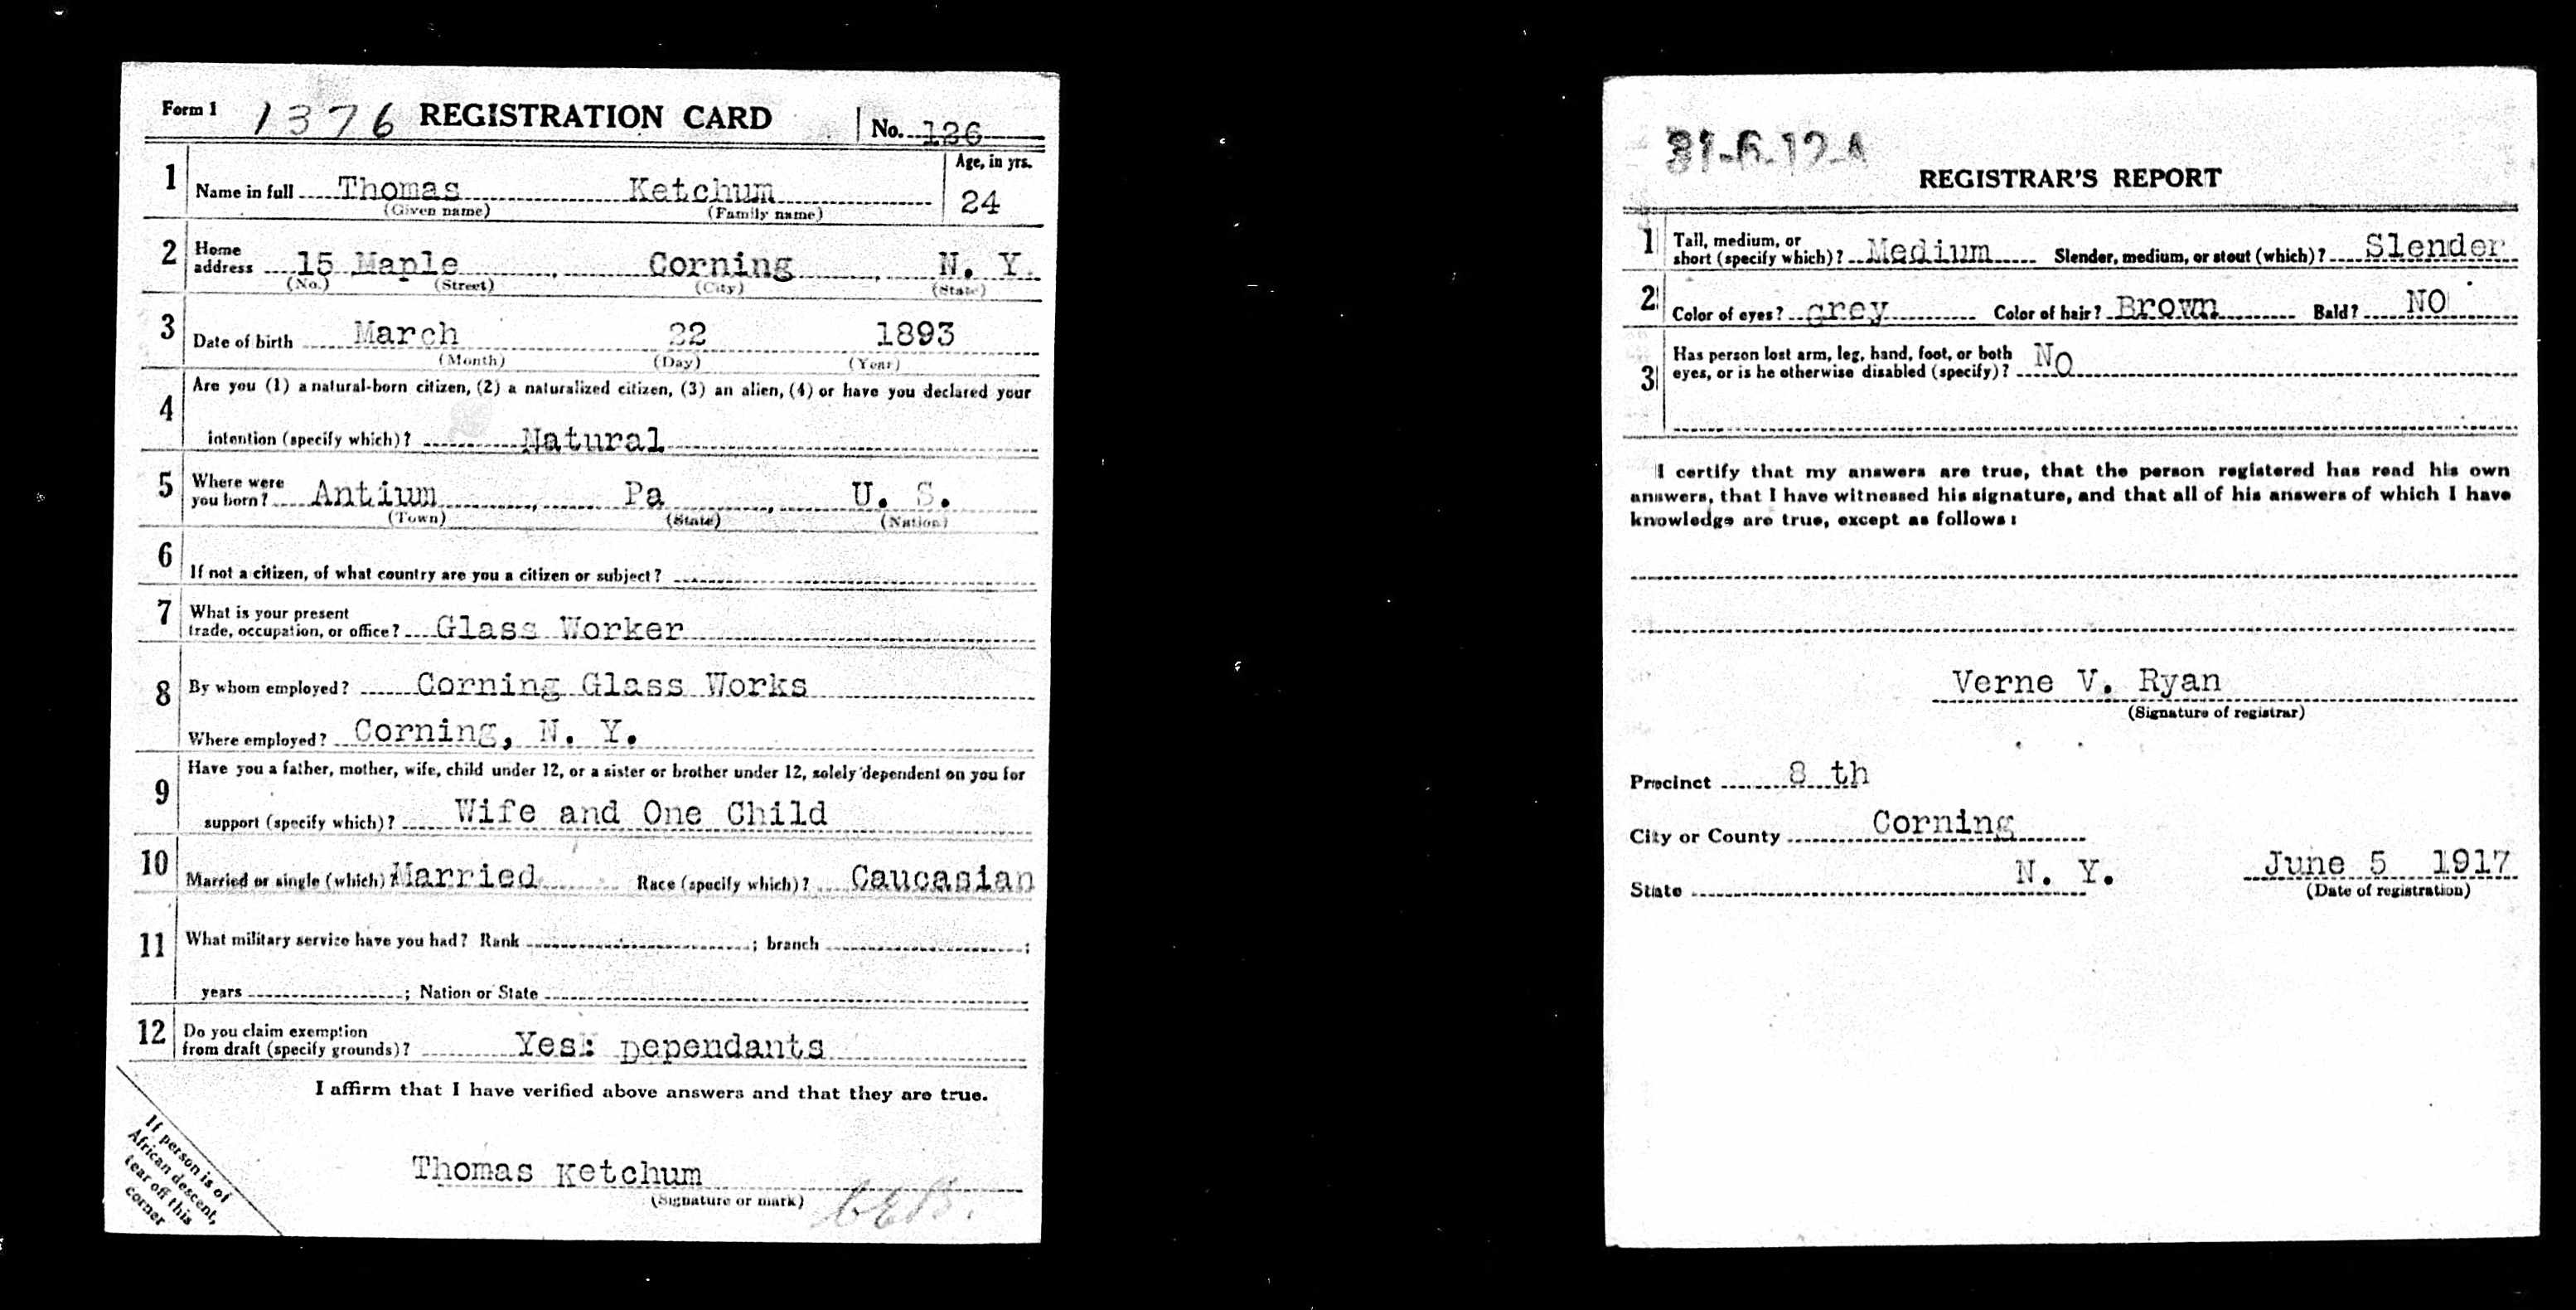 Form 1 1376 REGISTRATION CARD No. 136
1 Name in full Thomas Ketchum Age, in yrs. 24
(Given name) (Family name)
2 Home address 15 Maple, Corning, N. Y.
(No.) (Street) (City) (State)
3 Date of birth March 22 1893
(Month) (Day) (Year)
4 Are you (1) a natural-born citizen, (2) a naturalized citizen, (3) an alien, (4) or have you declared your
intention (specify which)? Natural
5 Where were you born? Antium, Pa, U. S.
(Town) (State) (Nation)
6 If not a citizen, of what country are you a citizen or subject?
7 What is your present
trade, occupation, or office? Glass Worker
8 By whom employed? Corning Glass Works
Where employed? Corning, N. Y.
9 Have you a father, mother, wife, child under 12, or a sister or brother under 12, solely dependent on you for
support (specify which)? Wife and One Child
10 Married or single (which)? Married Race (specify which)? Caucasian
11 What military service have you had? Rank ; branch ;
years ; Nation or State
12 Do you claim exemption
from draft (specify grounds)? Yes: Dependants
I affirm that I have verified above answers and that they are true.
Thomas Ketchum
(Signature or mark)
If person is of
African descent,
tear off this
corner
31-6-12-A
REGISTRAR'S REPORT
1 Tall, medium, or
short (specify which)? Medium Slender, medium, or stout (which)? Slender
2 Color of eyes? grey Color of hair? Brown Bald? NO
3 Has person lost arm, leg, hand, foot, or both
eyes, or is he otherwise disabled (specify)? No
I certify that my answers are true, that the person registered has read his own
answers, that I have witnessed his signature, and that all of his answers of which I have
knowledge are true, except as follows:
Verne V. Ryan
(Signature of registrar)
Precinct 8 th
City or County Corning
State N. Y. June 5 1917
(Date of registration)